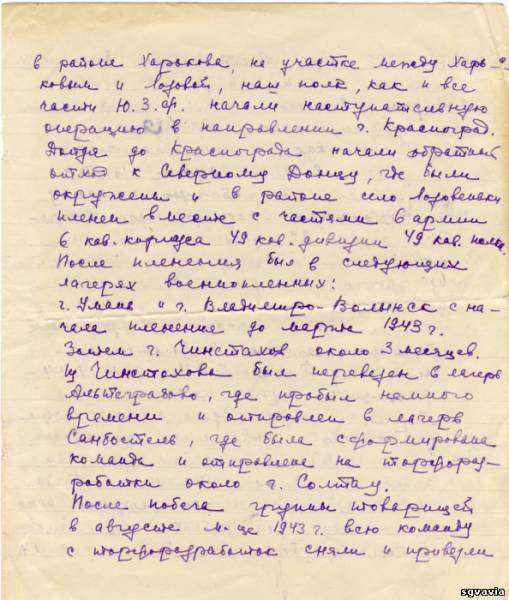 в районе Харькова, на участке между Харь-
ковым и Лозовой, наш полк, как и все
части Ю.З.Ф. начали наступательную
операцию в направлении г. Красноград.
Дойдя до Краснограда начали обратный
отход к Северному Донцу, где были
окружены и в районе село Лозовеньки
пленен вместе с частями 6 армии
6 кав. корпуса 49 кав. дивизии 49 кав. полка.
После пленения был в следующих
лагерях военнопленных:
г. Умань и г. Владимиро-Волынск с на-
чала пленение до марта 1943 г.
Затем г. Чинстахов около 3 месяцев.
Из Чинстахова был перевезен в лагерь
где пробыл немного
времени и отправлен в лагерь
Санбостель, где была сформирована
команда и отправлена на торфораз-
работки около г. Солтау.
После побега группы товарищей
в августе м-це 1943 г. всю команду
с торфоразработок сняли и привезли
sgvavia